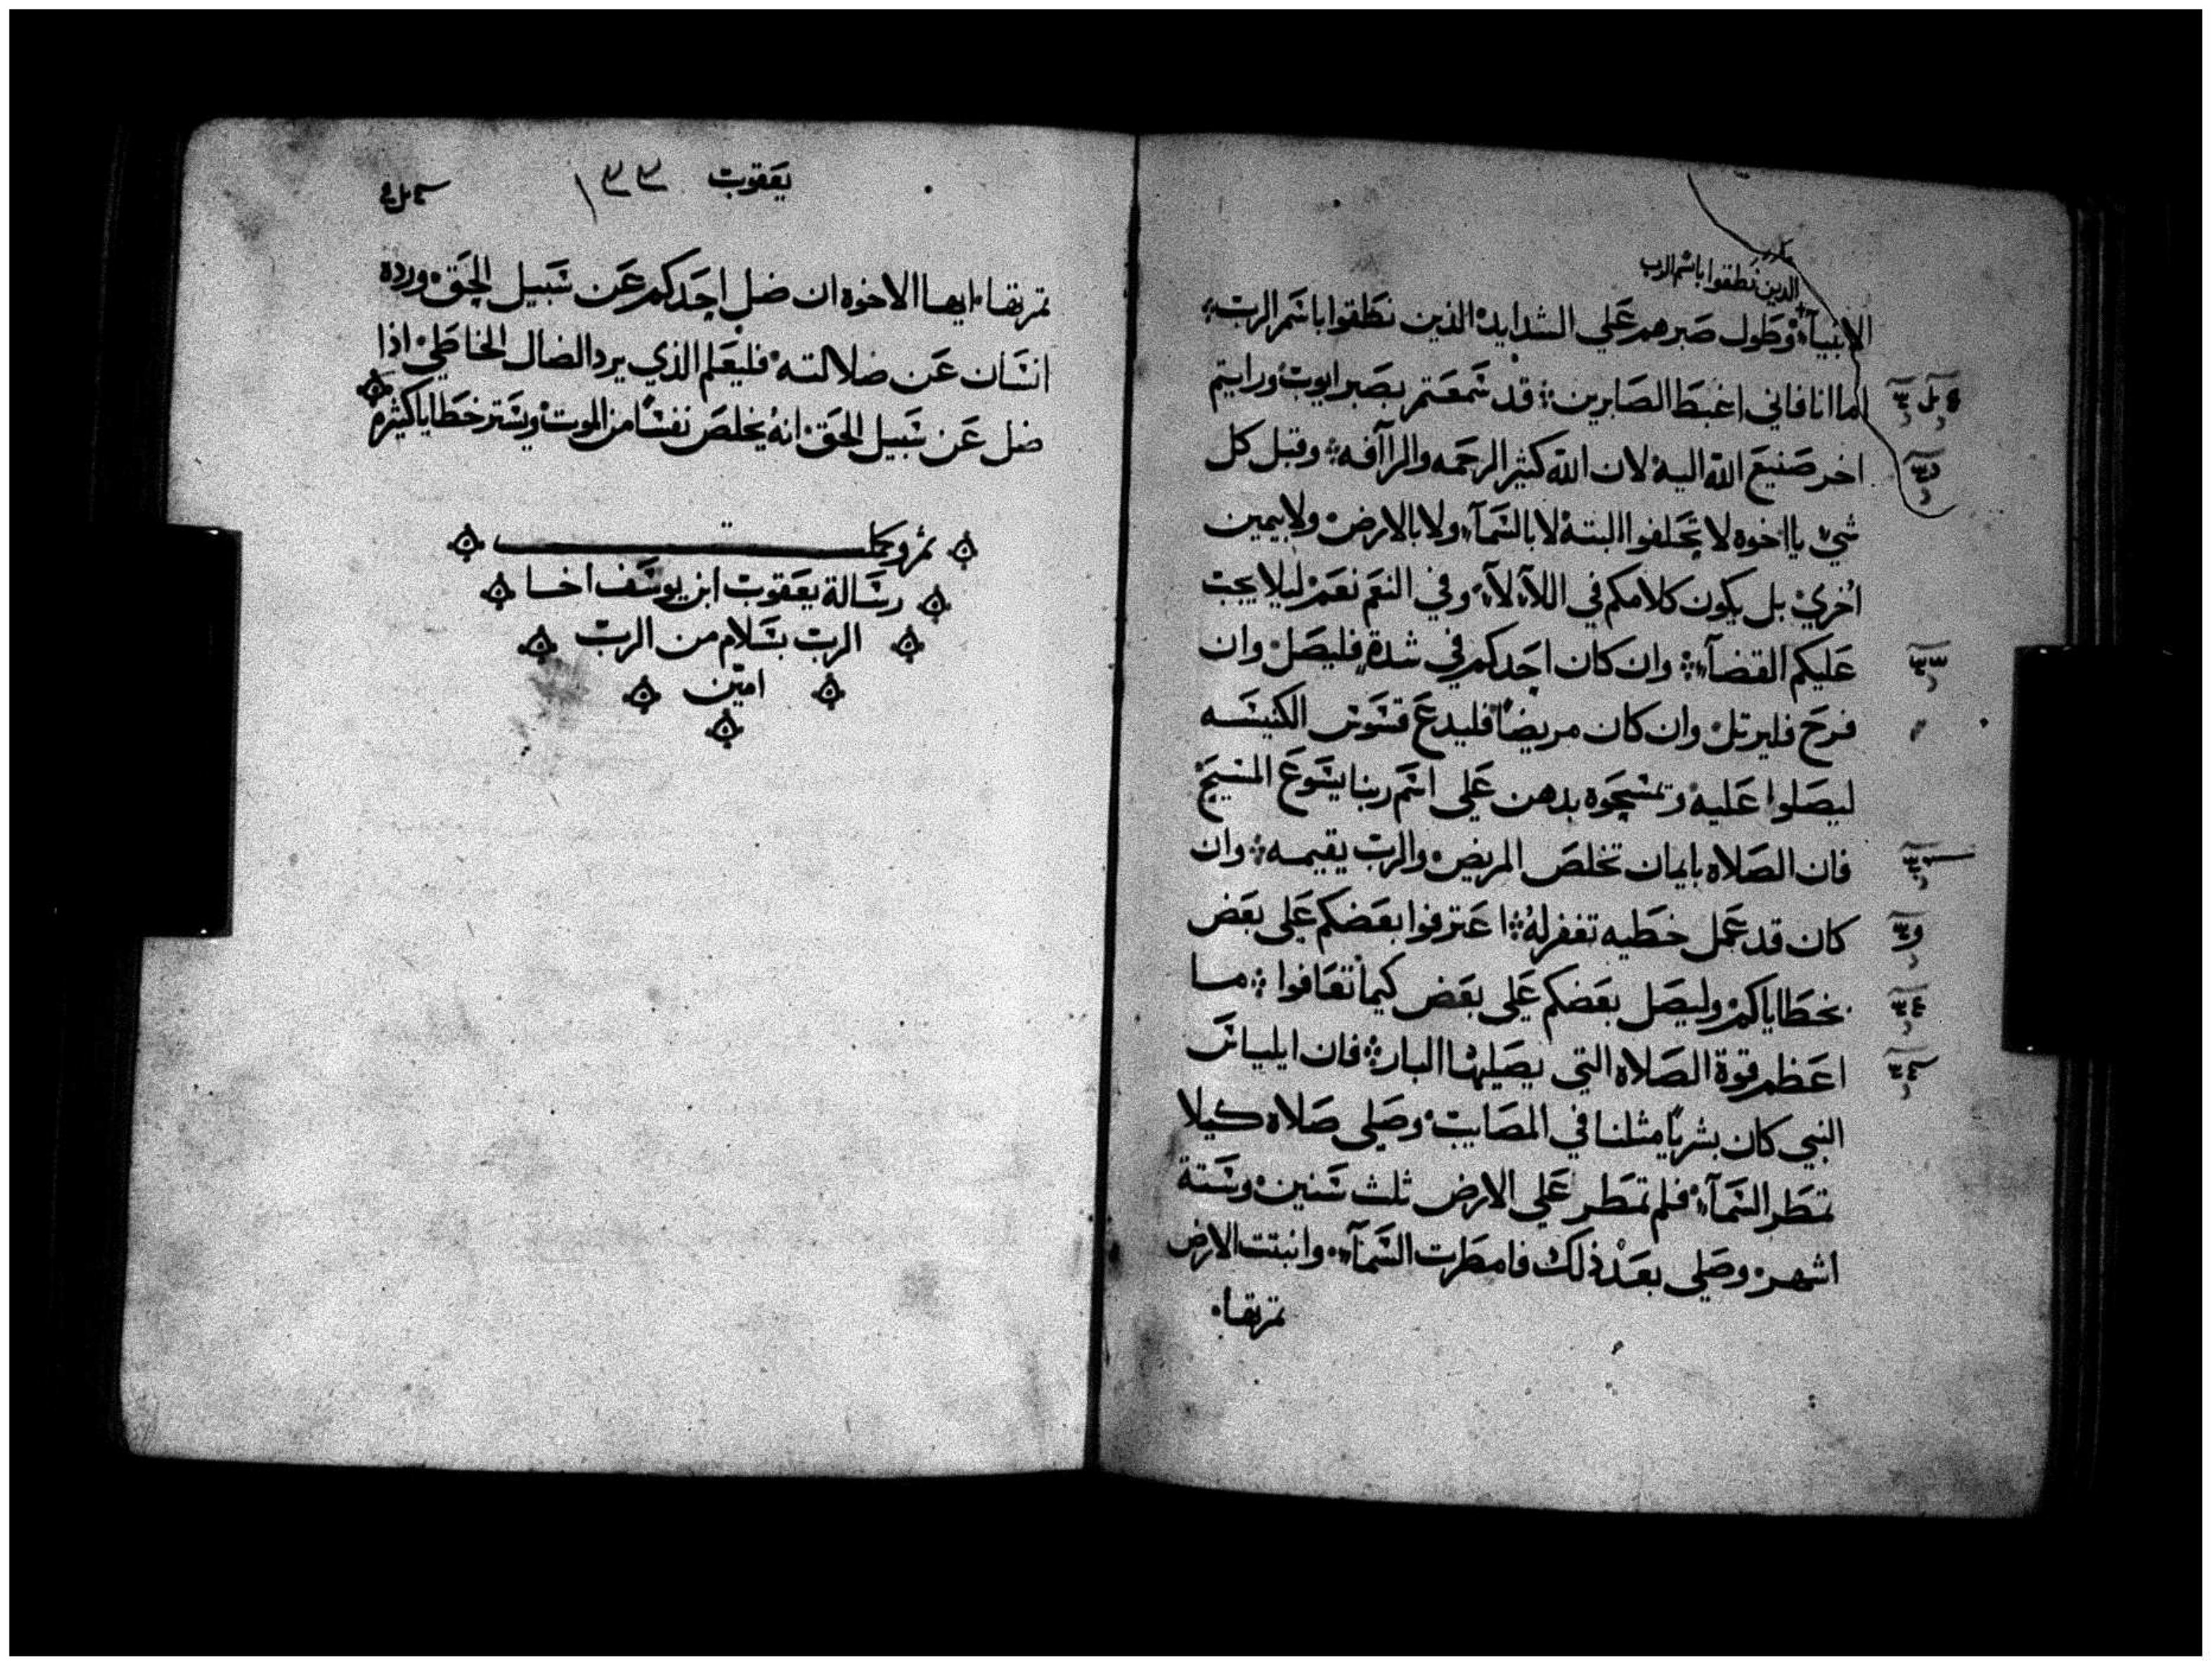 الذين نطقوا باسم الرب
الانبيآء وطول صبرهم علي الشدايد الذين نطقوا باسم الرب
اما انا فاني اغبط الصابرين قد سمعتم بصبر ايوب ورايتم
اخر صنيع الله اليه لان الله كثير الرحمه والراآفه وقبل كل
شي يا اخوه لا تحلفوا البتة لا بالسمآء ولا بالارض ولا بيمين
اخري بل يكون كلامكم في اللآ لآ وفي النعم نعم ليلا يجب
عليكم القضآء وان كان احدكم في شدة فليصل وان
فرح فليرتل وان كان مريضا فليدع قسوس الكنيسه
ليصلوا عليه وتمسحوه بدهن علي اسم ربنا يسوع المسيح
فان الصلاه بايمان تخلص المريض والرب يقيمه وان
كان قد عمل خطيه تغفر له اعترفوا بعضكم علي بعض
بخطاياكم وليصل بعضكم علي بعض كيما تعافوا ما
اعظم قوة الصلاه التي يصليها البار فان ايلياس
النبي كان بشريا مثلنا في المصايب وصلي صلاه كيلا
تمطر السمآء فلم تمطر علي الارض ثلث سنين وستة
اشهر وصلي بعد ذلك فامطرت السمآء وانبتت الارض
ثمرتها
يعقوب ١٣٣
ثمرتها ايها الاخوه ان ضل احدكم عن سبيل الحق ورده
انسان عن ضلالته فليعلم الذي يرد الضال الخاطي اذا
ضل عن سبيل الحق انه يخلص نفسا من الموت ويستر خطايا كثيره
تم وكمل
رسالة يعقوب ابن يوسف اخا
الرب بسلام من الرب
امين